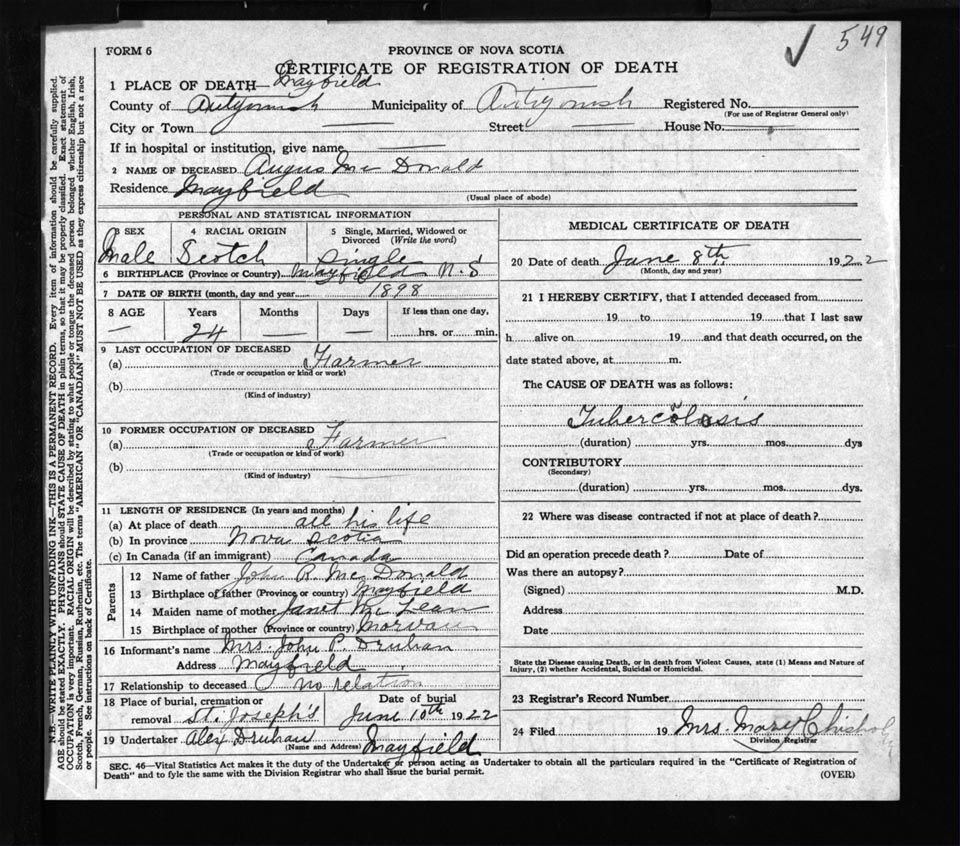 549
FORM 6
PROVINCE OF NOVA SCOTIA
CERTIFICATE OF REGISTRATION OF DEATH
1 PLACE OF DEATH— Mayfield
County of Antigonish Municipality of Antigonish Registered No.
(For use of Registrar General only)
City or Town Street House No.
If in hospital or institution, give name
2 NAME OF DECEASED Angus Mc Donald
Residence Mayfield
(Usual place of abode)
PERSONAL AND STATISTICAL INFORMATION
3 SEX 4 RACIAL ORIGIN 5 Single, Married, Widowed or Divorced (Write the word)
Male Scotch Single
6 BIRTHPLACE (Province or Country) Mayfield N.S
7 DATE OF BIRTH (month, day and year) 1898
8 AGE Years Months Days If less than one day,
— 24 — — hrs. or min.
9 LAST OCCUPATION OF DECEASED
(a) Farmer
(Trade or occupation or kind or work)
(b)
(Kind of industry)
10 FORMER OCCUPATION OF DECEASED
(a) Farmer
(Trade or occupation or kind of work)
(b)
(Kind of industry)
11 LENGTH OF RESIDENCE (In years and months)
(a) At place of death all his life
(b) In province Nova Scotia
(c) In Canada (if an immigrant) Canada
Parents
12 Name of father John R. Mc Donald
13 Birthplace of father (Province or country) Mayfield
14 Maiden name of mother Janet Mc Lean
15 Birthplace of mother (Province or country) Morvan
16 Informant's name Mrs. John P. Druhan
Address Mayfield
17 Relationship to deceased no relation
18 Place of burial, cremation or removal St. Joseph's Date of burial June 10th 1922
19 Undertaker Alex Druhan Mayfield
(Name and Address)
MEDICAL CERTIFICATE OF DEATH
20 Date of death June 8th, 1922
(Month, day and year)
21 I HEREBY CERTIFY, that I attended deceased from
19 to 19 that I last saw
h alive on 19 and that death occurred, on the
date stated above, at m.
The CAUSE OF DEATH was as follows:
Tubercolosis
(duration) yrs. mos. dys
CONTRIBUTORY
(Secondary)
(duration) yrs. mos. dys.
22 Where was disease contracted if not at place of death?
Did an operation precede death? Date of
Was there an autopsy?
(Signed) M.D.
Address
Date
State the Disease causing Death, or in death from Violent Causes, state (1) Means and Nature of
Injury, (2) whether Accidental, Suicidal or Homicidal.
23 Registrar's Record Number
24 Filed 19 Mrs. Mary Chishol
Division Registrar
SEC. 46—Vital Statistics Act makes it the duty of the Undertaker or person acting as Undertaker to obtain all the particulars required in the "Certificate of Registration of
Death" and to fyle the same with the Division Registrar who shall issue the burial permit.
(OVER)
N.B.—WRITE PLAINLY WITH UNFADING INK—THIS IS A PERMANENT RECORD. Every item of information should be carefully supplied.
AGE should be stated EXACTLY. PHYSICIANS should STATE CAUSE OF DEATH in plain terms, so that it may be properly classified. Exact statement of
OCCUPATION is very important. RACIAL ORIGIN will be described by stating to what people or tongue the deceased person belonged whether English, Irish,
Scotch, French, German, Russian, Ruthenian, etc. The terms "AMERICAN" OR "CANADIAN" MUST NOT BE USED as they express citizenship but not a race
or people. See instructions on back of Certificate.